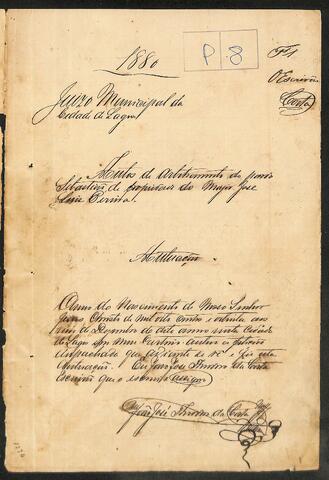 1880
P 8
Fl 1
O Escrivão
Costa
Juizo Municipal da
Cidade de Lages
Autos de arbitramento da
Sebastião de propriedade do Major José
Autuação
Anno do Nascimento de Nosso Senhor
Jesus Christo de mil oito centos e oitenta aos
de Dezembro do dito anno nesta Cidade
de Lages em meu Cartorio autuei a petição
despachada que adiante se vê e fiz esta
autuação. Eu João José Theodoro da Costa
escrivão que o escrevi
João José Theodoro da Costa